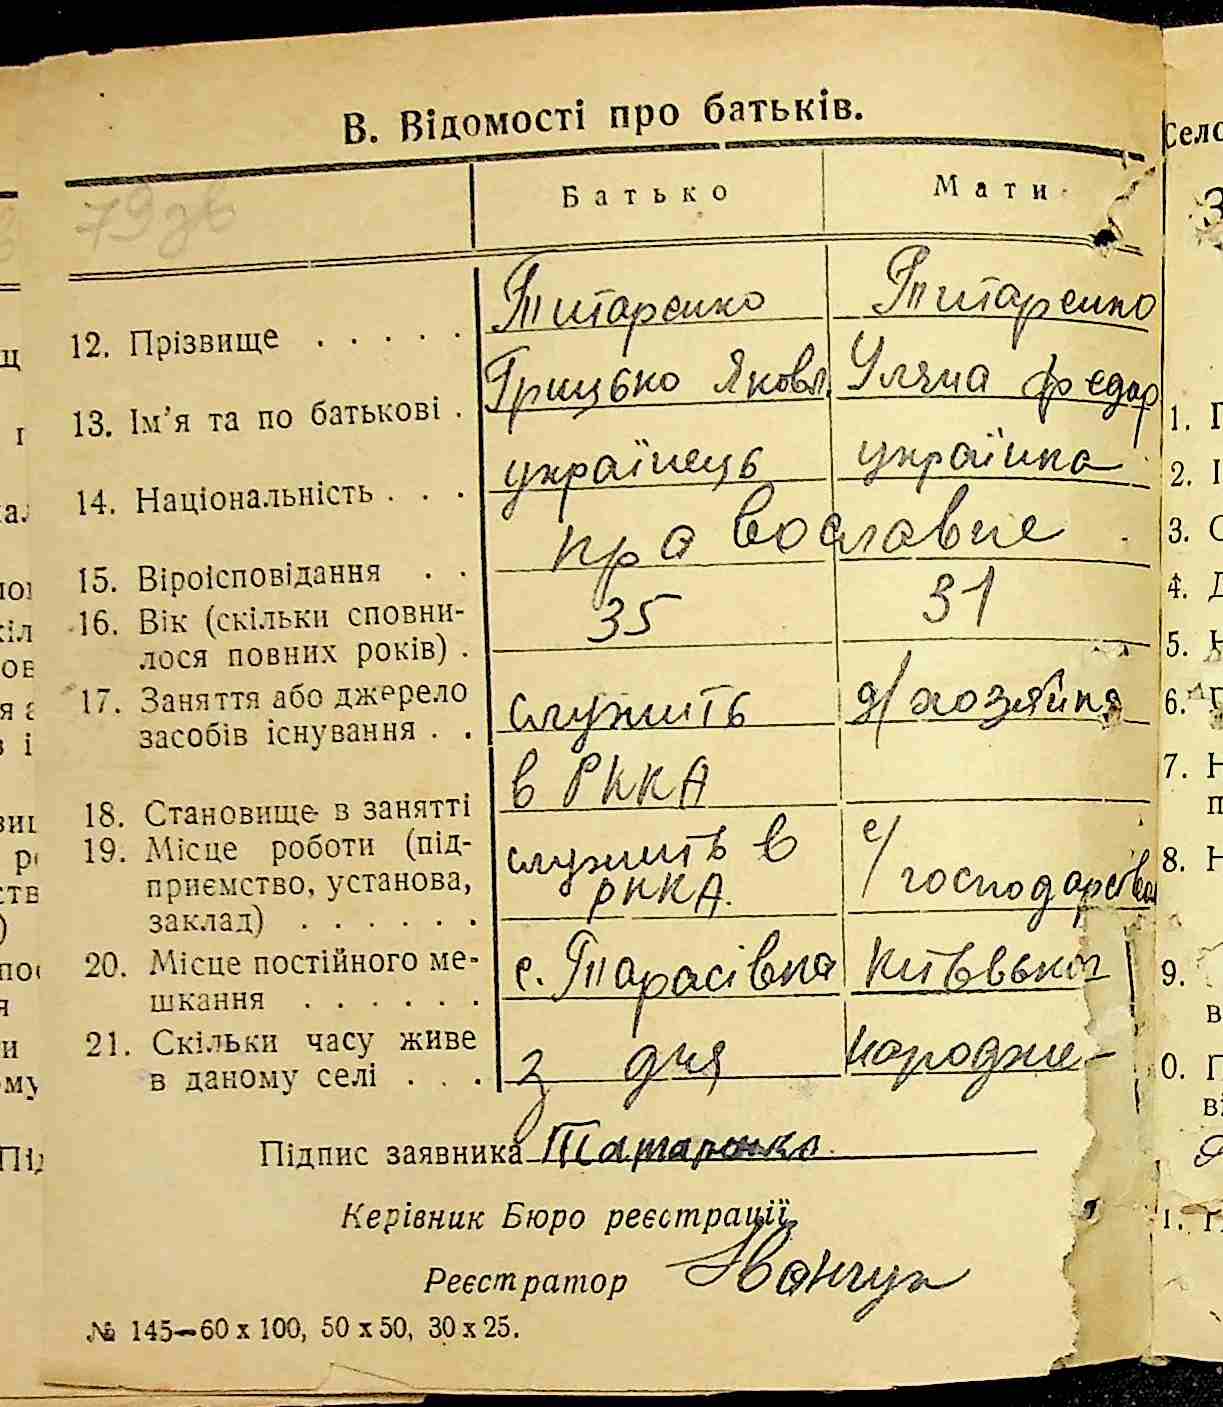 В. Відомості про батьків.
Батько Мати
79зв
Титаренко Титаренко
12. Прізвище . . . . .
Грицько Яковл. Уляна Федор
13. Ім'я та по батькові .
українець українка
14. Національність . . .
православне
15. Віроісповідання . .
35 31
16. Вік (скільки сповни-
лося повних років) .
17. Заняття або джерело
служить д/хозяйка
засобів існування . .
в РККА
18. Становище в занятті
19. Місце роботи (під-
служить в с/господарства
приємство, установа,
РККА.
заклад) . . . . . .
20. Місце постійного ме-
с. Тарасівка
шкання . . . . . .
21. Скільки часу живе
з дня народже-
в даному селі . . .
Підпис заявника Титаренко
Керівник Бюро реєстрації
Реєстратор Іванчук
№ 145—60 х 100, 50 х 50, 30 х 25.
Село
1.
2.
3.
4.
5.
6.
7.
8.
9.
0.
1.